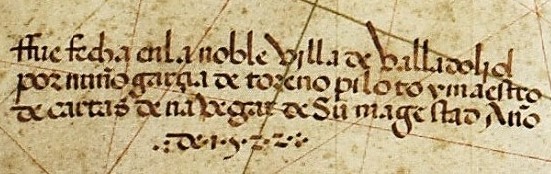 ffue fecha en la noble Villa de Valladolid
por nuño garçia de toreno piloto y maestro
de cartas de navegar de Su magestad Año
.:.de.1.5.2.2.:.